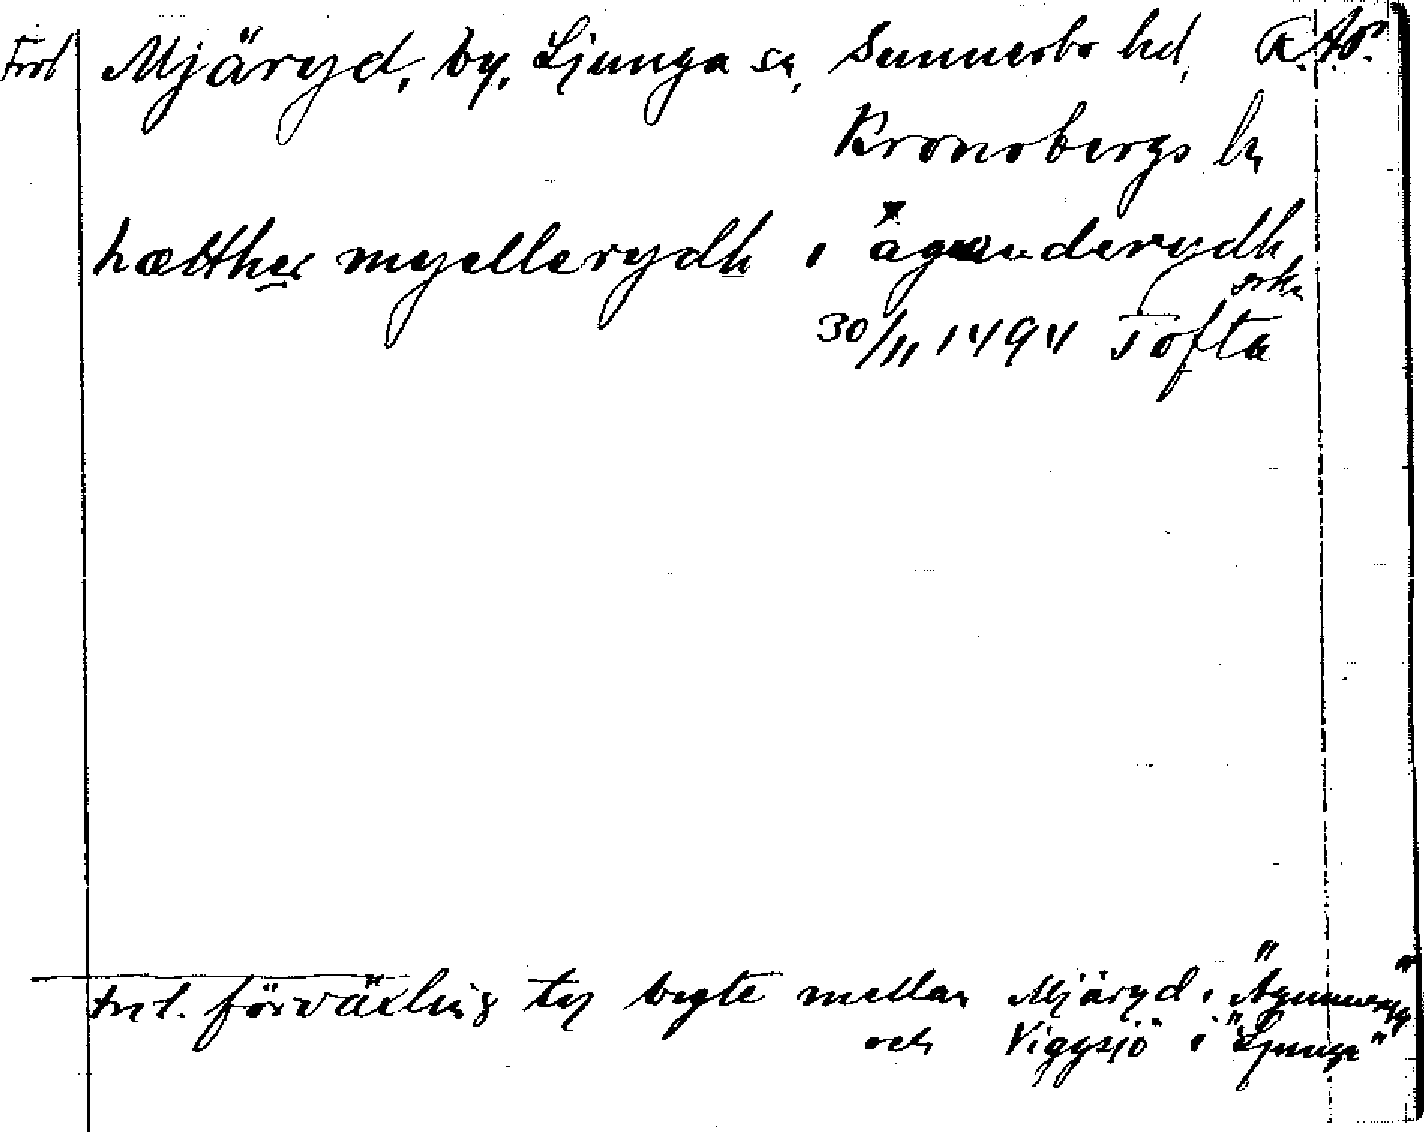 Frol Mjäryd, by, Ljunga sn, Sunnerbo hd, R.A.P.
Kronobergs ln
hætther myellerydh i ägaunderydh
sokn
30/11 1494 Tofta
trol. förväxling ty byte mellan Mjäryd i "Agunnaryd"
och Viggsjö i "Ljunga"